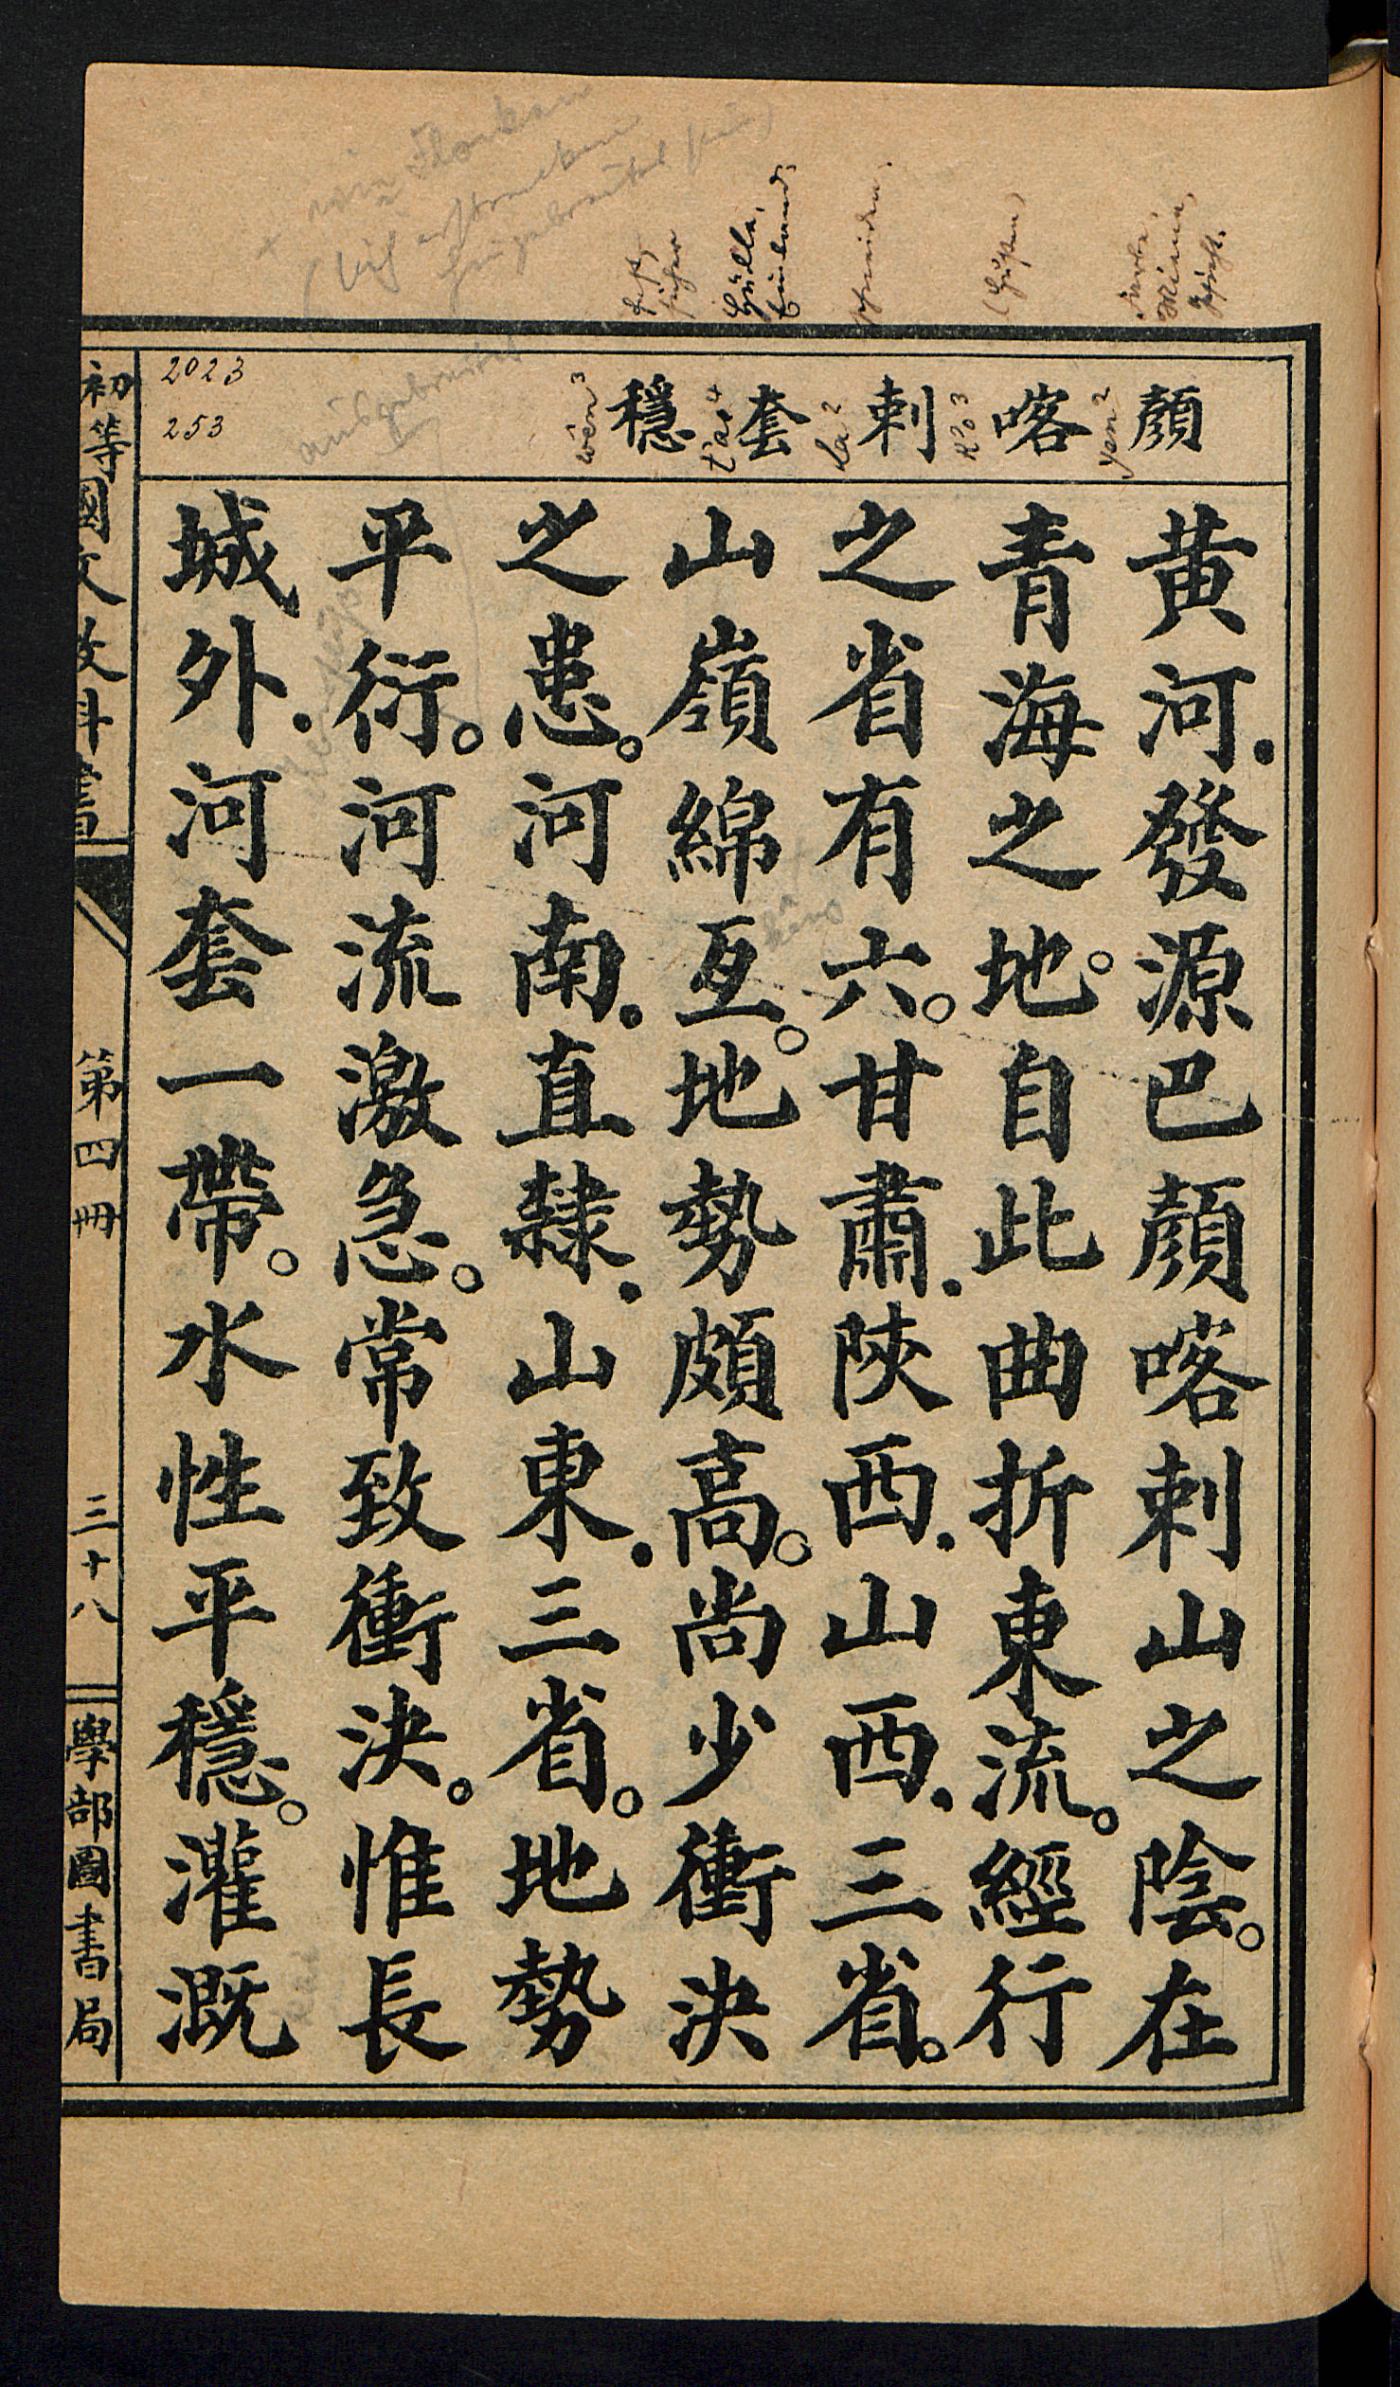 顏 喀 剌 套 穩
yen² k'o³ la² t'ao⁴ wên³
黃河．發源巴顏喀剌山之陰。在
青海之地。自此曲折東流。經行
之省有六。甘肅．陝西．山西．三省。
山嶺綿亙。地勢頗高。尚少衝決
之患。河南．直隸．山東．三省。地勢
平衍。河流激急。常致衝決。惟長
城外．河套一帶。水性平穩。灌溉
2023
253
初等國文教科書
第四冊
三十八
學部圖書局